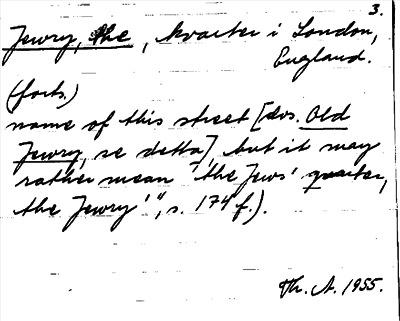 3.
Jewry, the, kvarter i London,
England.
(forts.)
name of this street [dvs. Old
Jewry, se detta], but it may
rather mean 'the Jews' quarter,
the Jewry'", s. 174 f.).
Th. A. 1955.